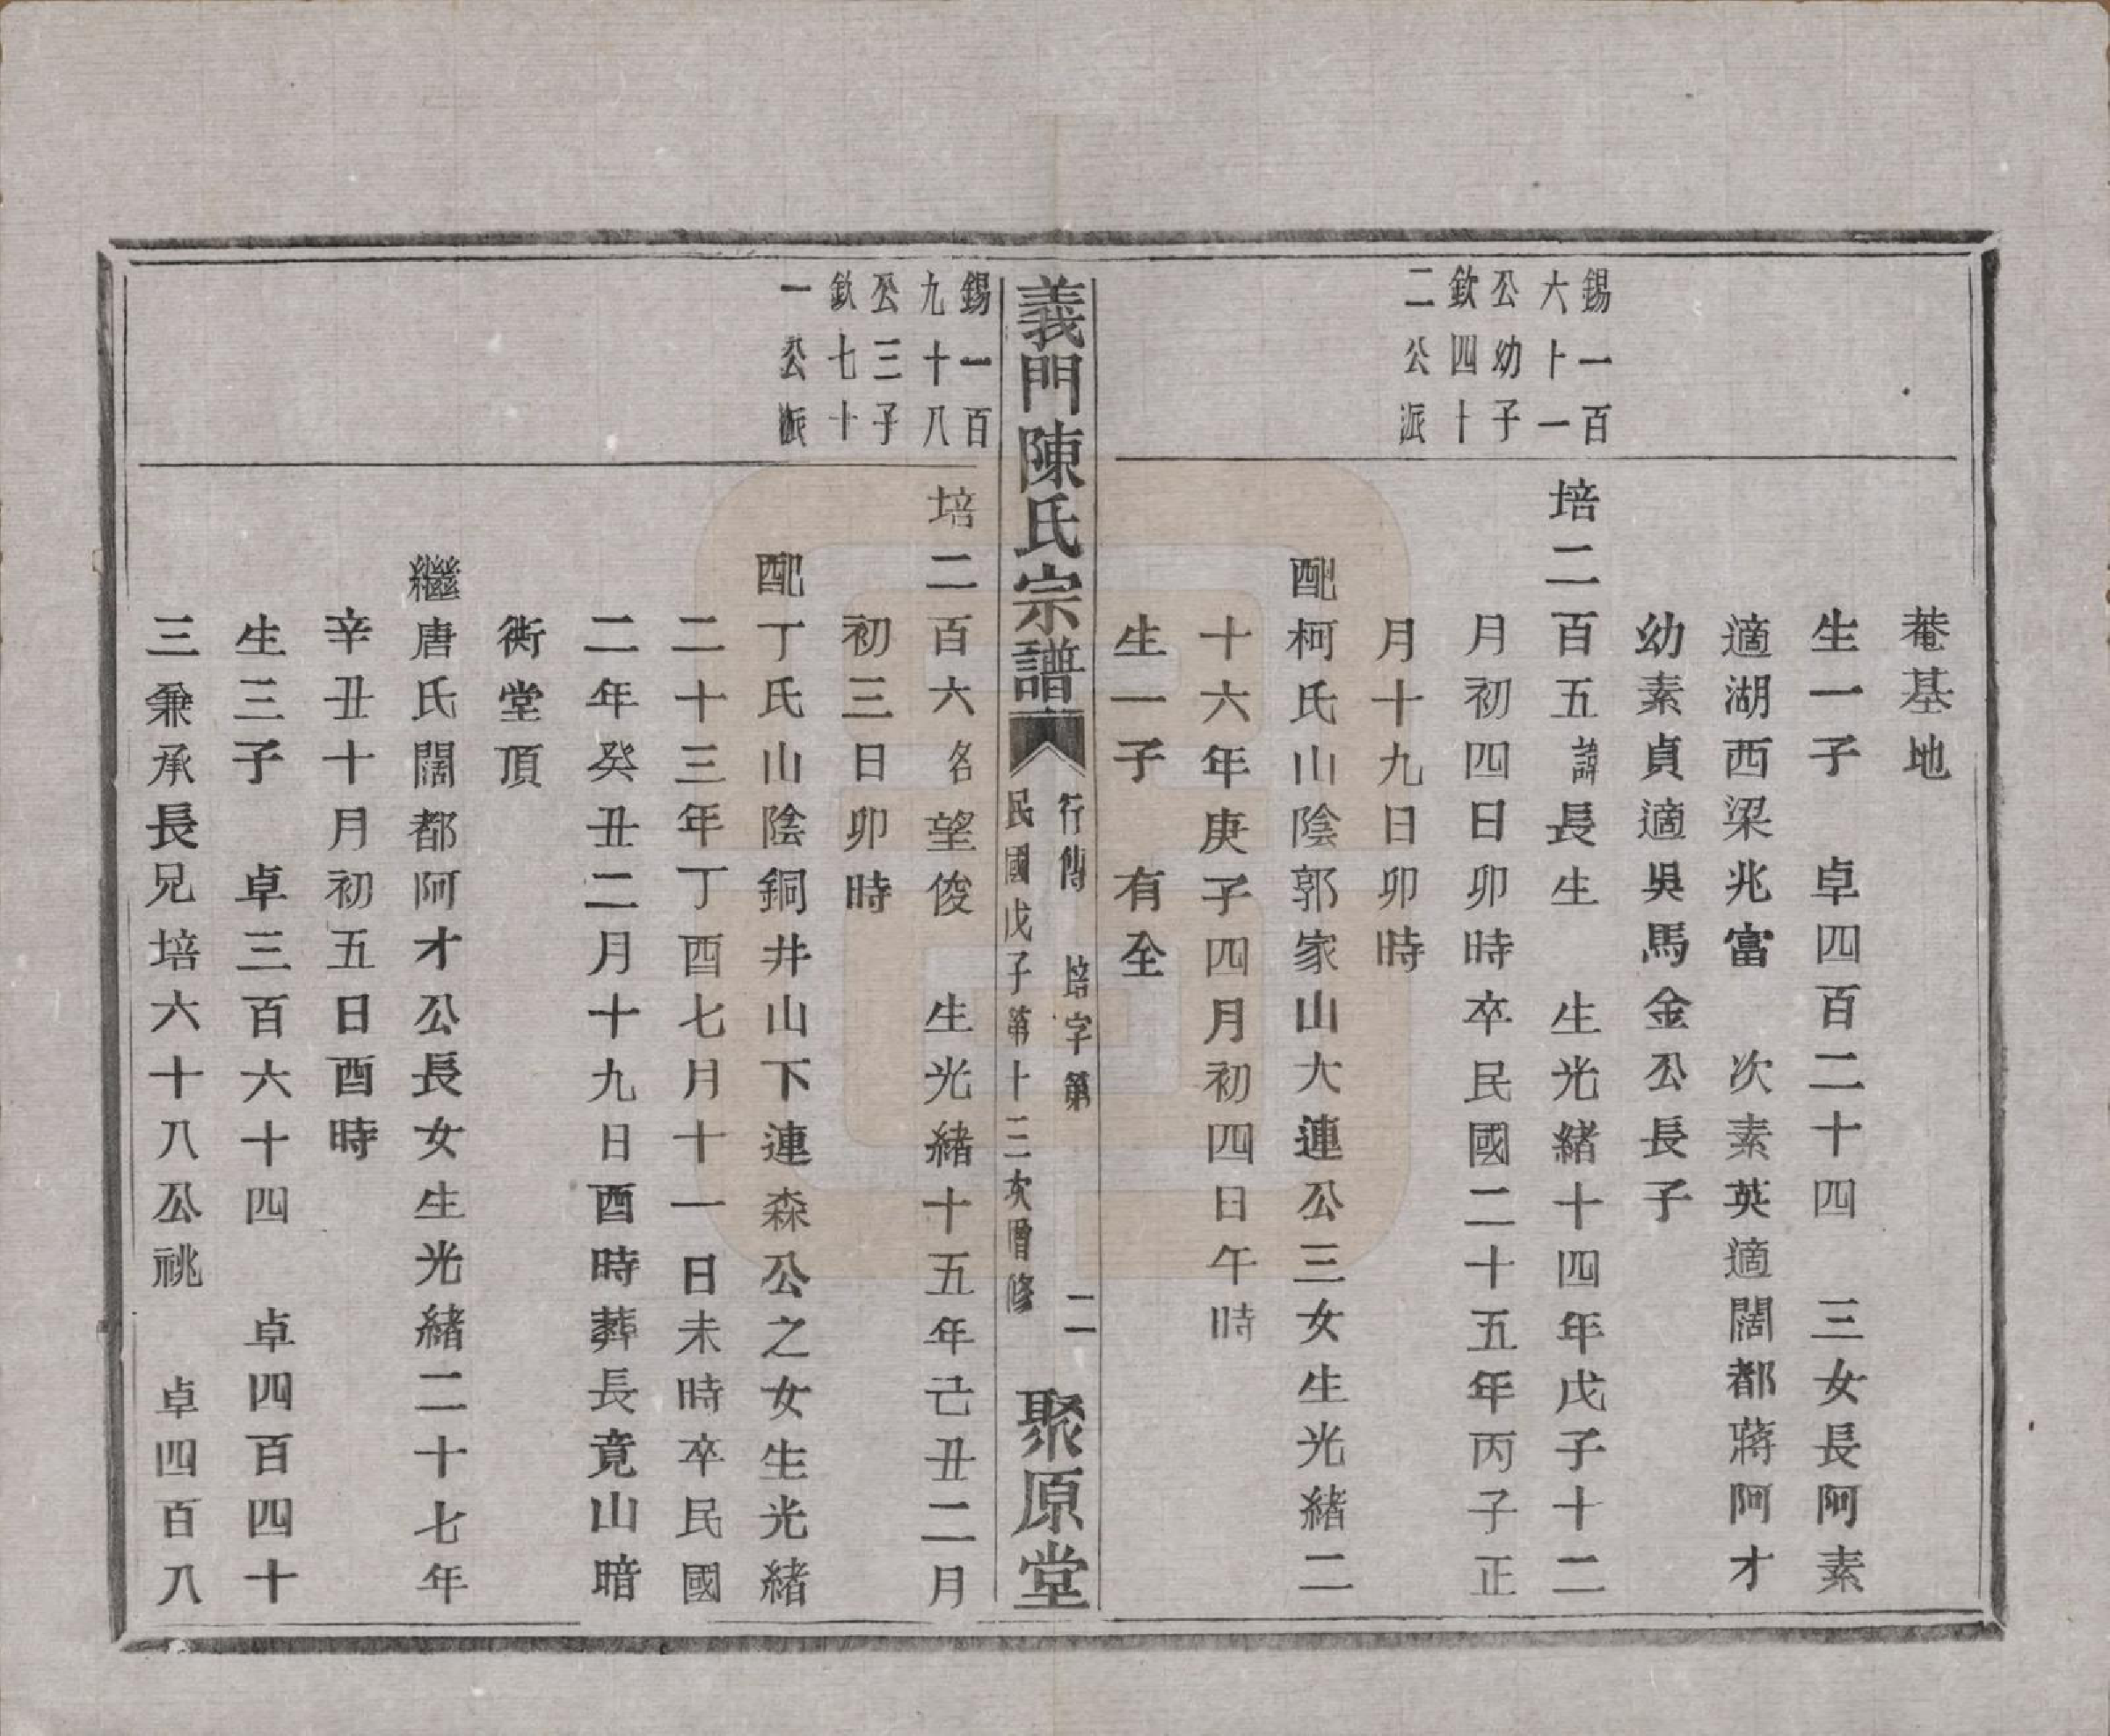 菴基地
生一子　卓四百二十四　三女長阿素
適湖西梁兆富　次素英適闊都蔣阿才
幼素貞適吳馬金公長子
錫一百
六十一
公幼子
欽四十
二公派
培二百五諱長生　生光緒十四年戊子十二
月初四日卯時卒民國二十五年丙子正
月十九日卯時
配柯氏山陰郭家山大連公三女生光緒二
十六年庚子四月初四日午時
生一子　有全
義門陳氏宗譜
行傳　培字第　二
民國戊子第十三次增修
聚原堂
錫一百
九十八
公三子
欽七十
一公派
培二百六名望俊　生光緒十五年己丑二月
初三日卯時
配丁氏山陰銅井山下連森公之女生光緒
二十三年丁酉七月十一日未時卒民國
二年癸丑二月十九日酉時葬長竟山暗
衖堂頂
繼唐氏闊都阿才公長女生光緒二十七年
辛丑十月初五日酉時
生三子　卓三百六十四　卓四百四十
三兼承長兄培六十八公祧　卓四百八